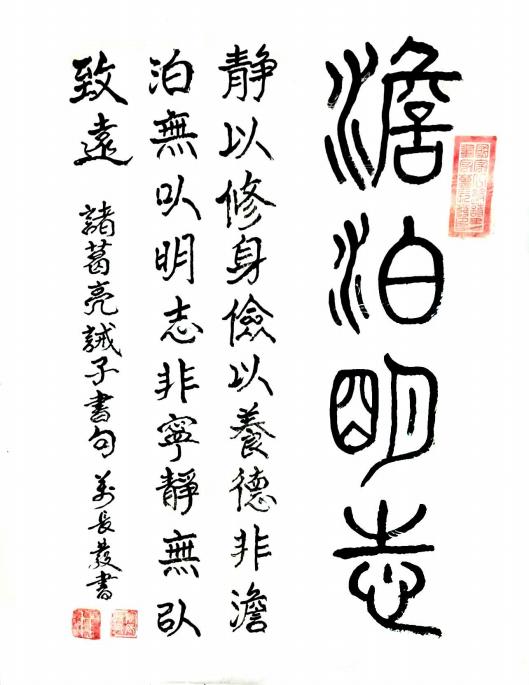 澹泊明志
静以修身儉以養德非澹
泊無以明志非寧静無以
致遠
諸葛亮誡子書句 萬長發書